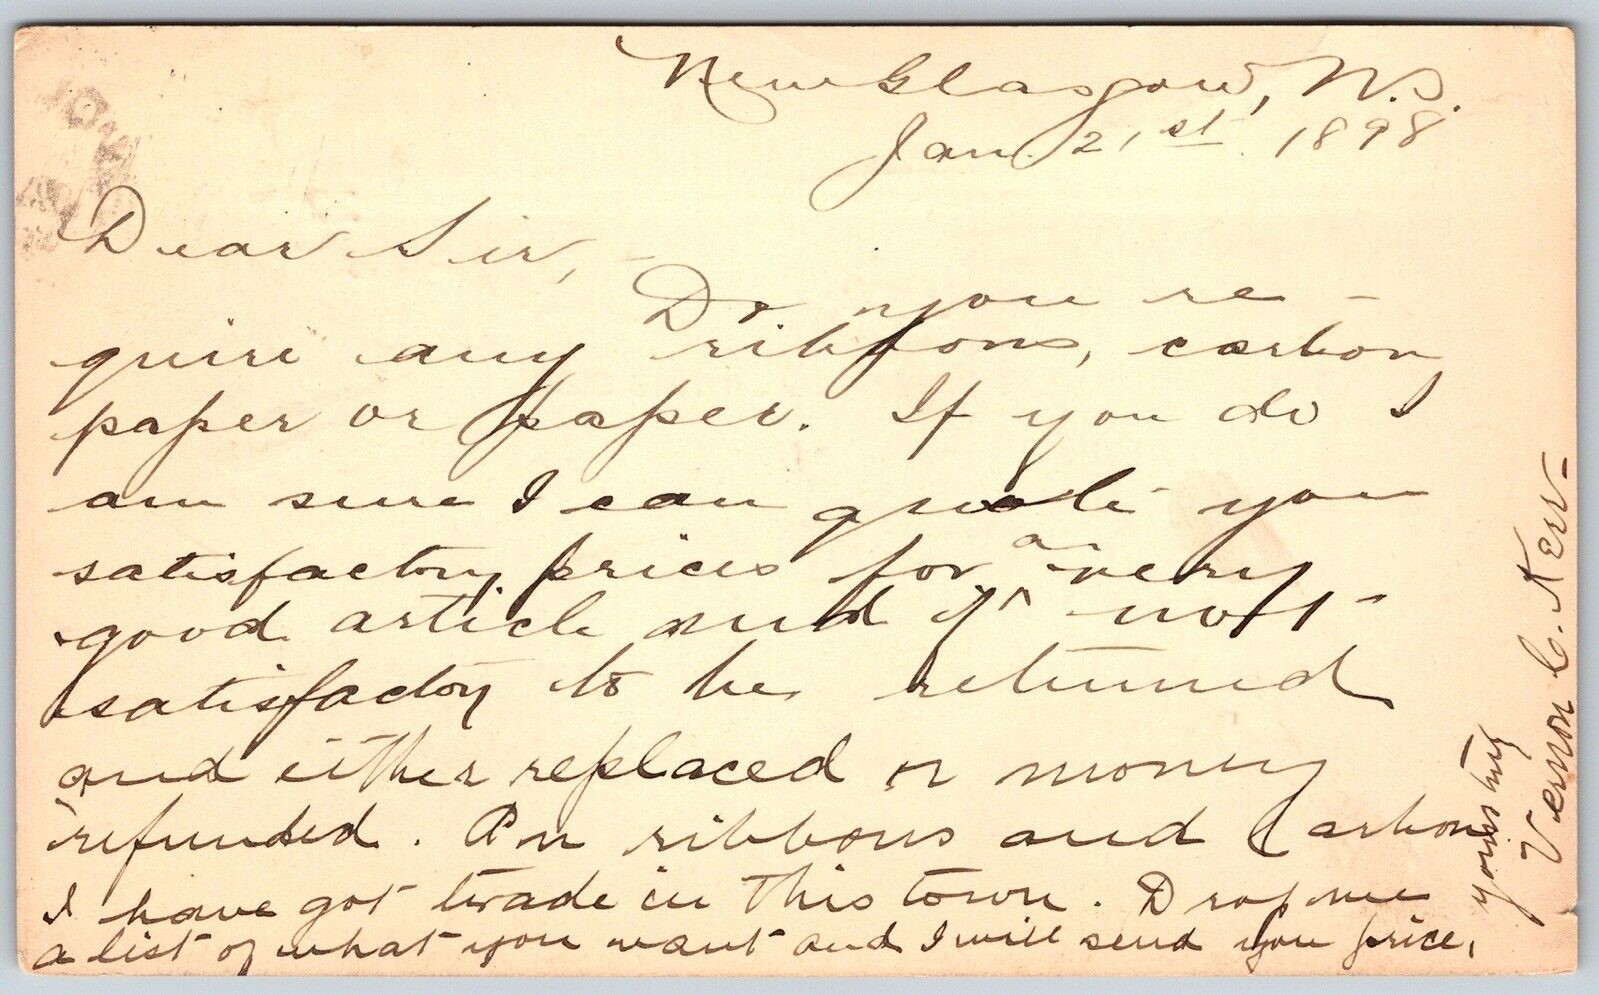 New Glasgow, N.S.
Jan. 21st 1898
Dear Sir, -
Do you re-
quire any ribbons, carbon
paper or paper. If you do I
am sure I can quote you
satisfactory prices for a very
good article and if not
satisfactory to be returned
and either replaced or money
refunded. On ribbons and Carbon
I have got trade in this town. Drop me
a list of what you want and I will send you price,
yours truly
Vernon C. Kerr-